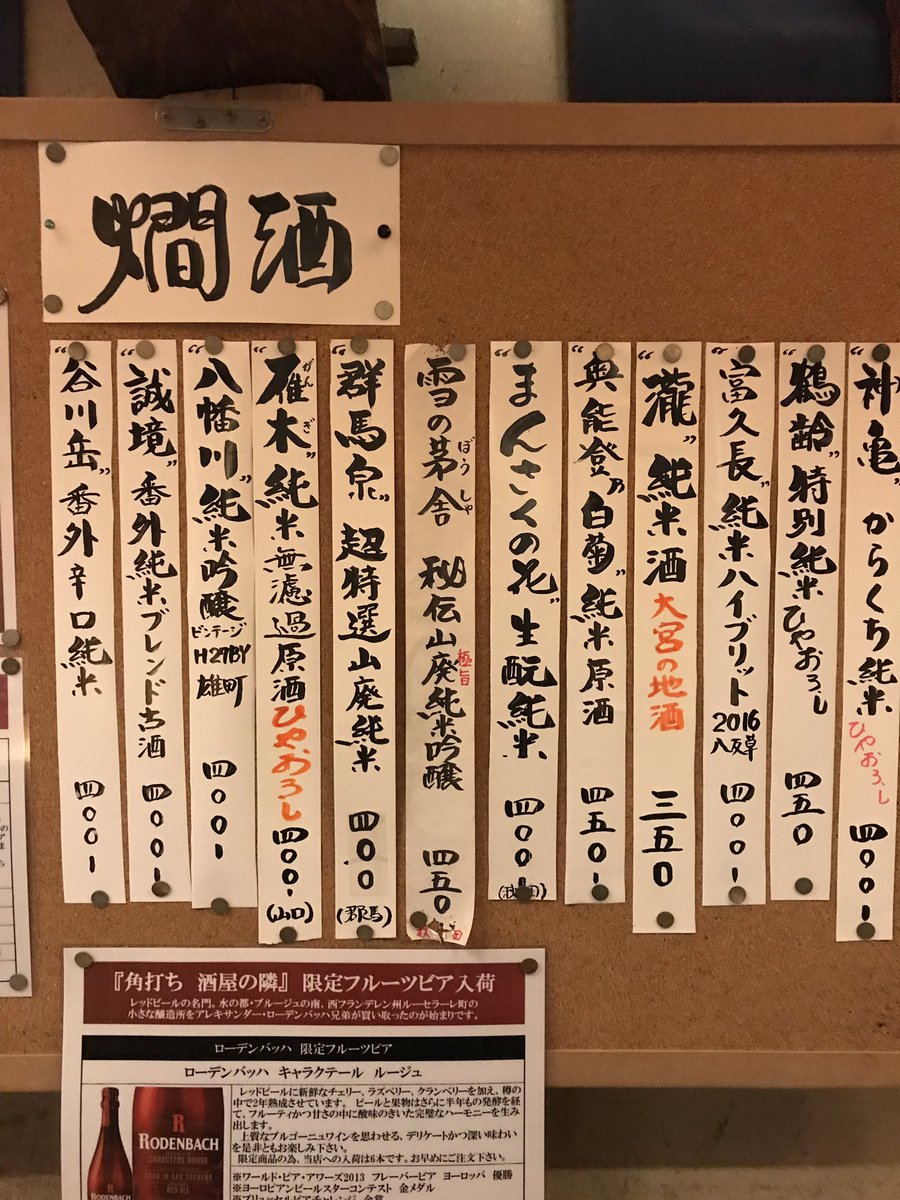 燗酒
“神亀”からくち純米 ひやおろし 四〇〇-
“鶴齢”特別純米ひやおろし 四五〇
“富久長”純米ハイブリット 2016 八反草 四〇〇-
“瀧”純米酒 大宮の地酒 三五〇
“奥能登の白菊”純米原酒 四五〇-
“まんさくの花”生酛純米 四〇〇-
雪の茅舎 ぼうしゃ 秘伝山廃純米吟醸 極旨 四五〇
“群馬泉”超特選山廃純米 四〇〇 (群馬)
“雁木”がんぎ 純米無濾過原酒 ひやおろし 四〇〇- (山口)
“八幡川”純米吟醸 ビンテージ H27BY 雄町 四〇〇-
“誠境”番外純米ブレンド古酒 四〇〇-
“谷川岳”番外辛口純米 四〇〇-
『角打ち 酒屋の隣』 限定フルーツビア入荷
レッドビールの名門。水の都・ブルージュの南、西フランデレン州ルーセラーレ町の
小さな醸造所をアレキサンダー・ローデンバッハ兄弟が買い取ったのが始まりです。
ローデンバッハ 限定フルーツビア
ローデンバッハ キャラクテール ルージュ
レッドビールに新鮮なチェリー、ラズベリー、クランベリーを加え、樽の
中で2年熟成させています。ビールと果物はさらに半年もの発酵を経
て、フルーティかつ甘さの中に酸味のきいた完璧なハーモニーを生み
出します。
上質なブルゴーニュワインを思わせる、デリケートかつ深い味わい
を是非ともお楽しみ下さい。
限定商品の為、当店への入荷は6本です。お早めにご注文下さい。
※ワールド・ビア・アワーズ2013 フレーバービア ヨーロッパ 優勝
※ヨーロピアンビールスターコンテスト 金メダル
R
RODENBACH
CARACTÈRE ROUGE
RODENBACH